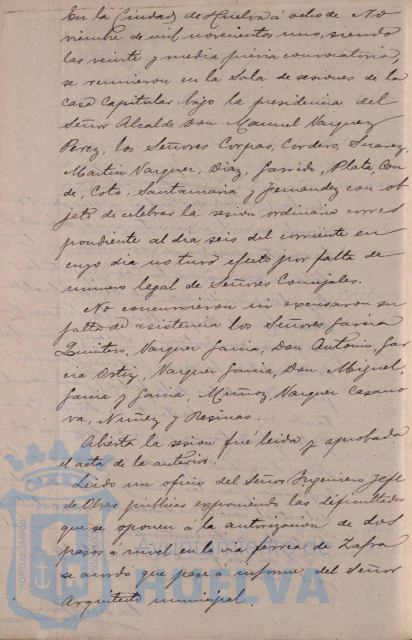 En la Ciudad de Huelva á ocho de No
viembre de mil novecientos uno, siendo
las veinte y media previa convocatoria,
se reunieron en la Sala de sesiones de la
Casa Capitular, bajo la presidencia del
Señor Alcalde Don Manuel Vazquez
Perez, los Señores Corpas, Cordero, Suarez,
Martin Vazquez, Diaz, Garrido, Plata, Con
de, Coto, Santamaria y Fernandez con ob
jeto de celebrar la sesion ordinaria corres
pondiente al dia seis del corriente en
cuyo dia no tuvo efecto por falta de
numero legal de Señores Concejales.
No concurrieron ni excusaron su
falta de asistencia los Señores Garcia
Quintero, Vazquez Garcia, Don Antonio, Gar
cia Ortiz, Vazquez Garcia, Don Miguel,
Garcia y Garcia, Muñoz, Vazquez Casano
va, Nuñez y Resinas.
Abierta la sesion fué leida y aprobada
el acta de la anterior.
Leido un oficio del Señor Ingeniero Jefe
de Obras publicas exponiendo las dificultades
que se oponen á la autorizacion de dos
pasos a nivel en la via ferrea de Zafra
se acordo que pase á informe del Señor
Arquitecto municipal.
HUELVA